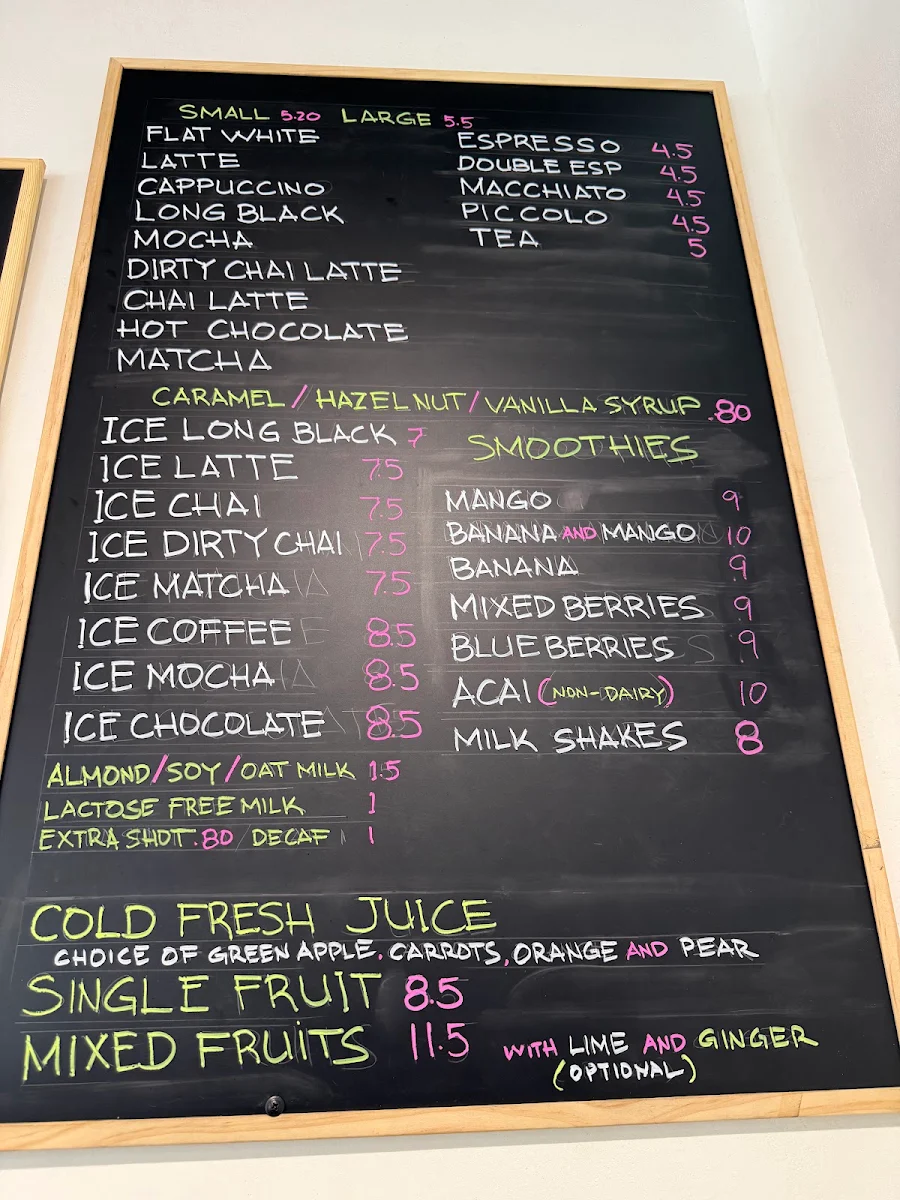 SMALL 5.20 LARGE 5.5
FLAT WHITE
LATTE
CAPPUCCINO
LONG BLACK
MOCHA
DIRTY CHAI LATTE
CHAI LATTE
HOT CHOCOLATE
MATCHA
ESPRESSO 4.5
DOUBLE ESP 4.5
MACCHIATO 4.5
PICCOLO 4.5
TEA 5
CARAMEL / HAZELNUT / VANILLA SYRUP .80
ICE LONG BLACK 7
ICE LATTE 7.5
ICE CHAI 7.5
ICE DIRTY CHAI 7.5
ICE MATCHA 7.5
ICE COFFEE 8.5
ICE MOCHA 8.5
ICE CHOCOLATE 8.5
ALMOND/SOY/OAT MILK 1.5
LACTOSE FREE MILK 1
EXTRA SHOT .80 / DECAF 1
SMOOTHIES
MANGO 9
BANANA AND MANGO 10
BANANA 9
MIXED BERRIES 9
BLUEBERRIES 9
ACAI (NON-DAIRY) 10
MILK SHAKES 8
COLD FRESH JUICE
CHOICE OF GREEN APPLE, CARROTS, ORANGE AND PEAR
SINGLE FRUIT 8.5
MIXED FRUiTS 11.5 WITH LIME AND GINGER
(OPTIONAL)